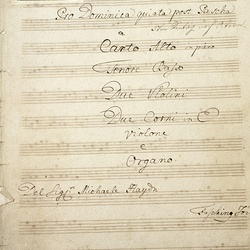 Pro Dominica quinta post Pascha
a
Canto Alto in pieno
Tenore Basso
Due Violini
Due Corni in C
Violone
e
Organo
Del Sigre Michaele Haydn